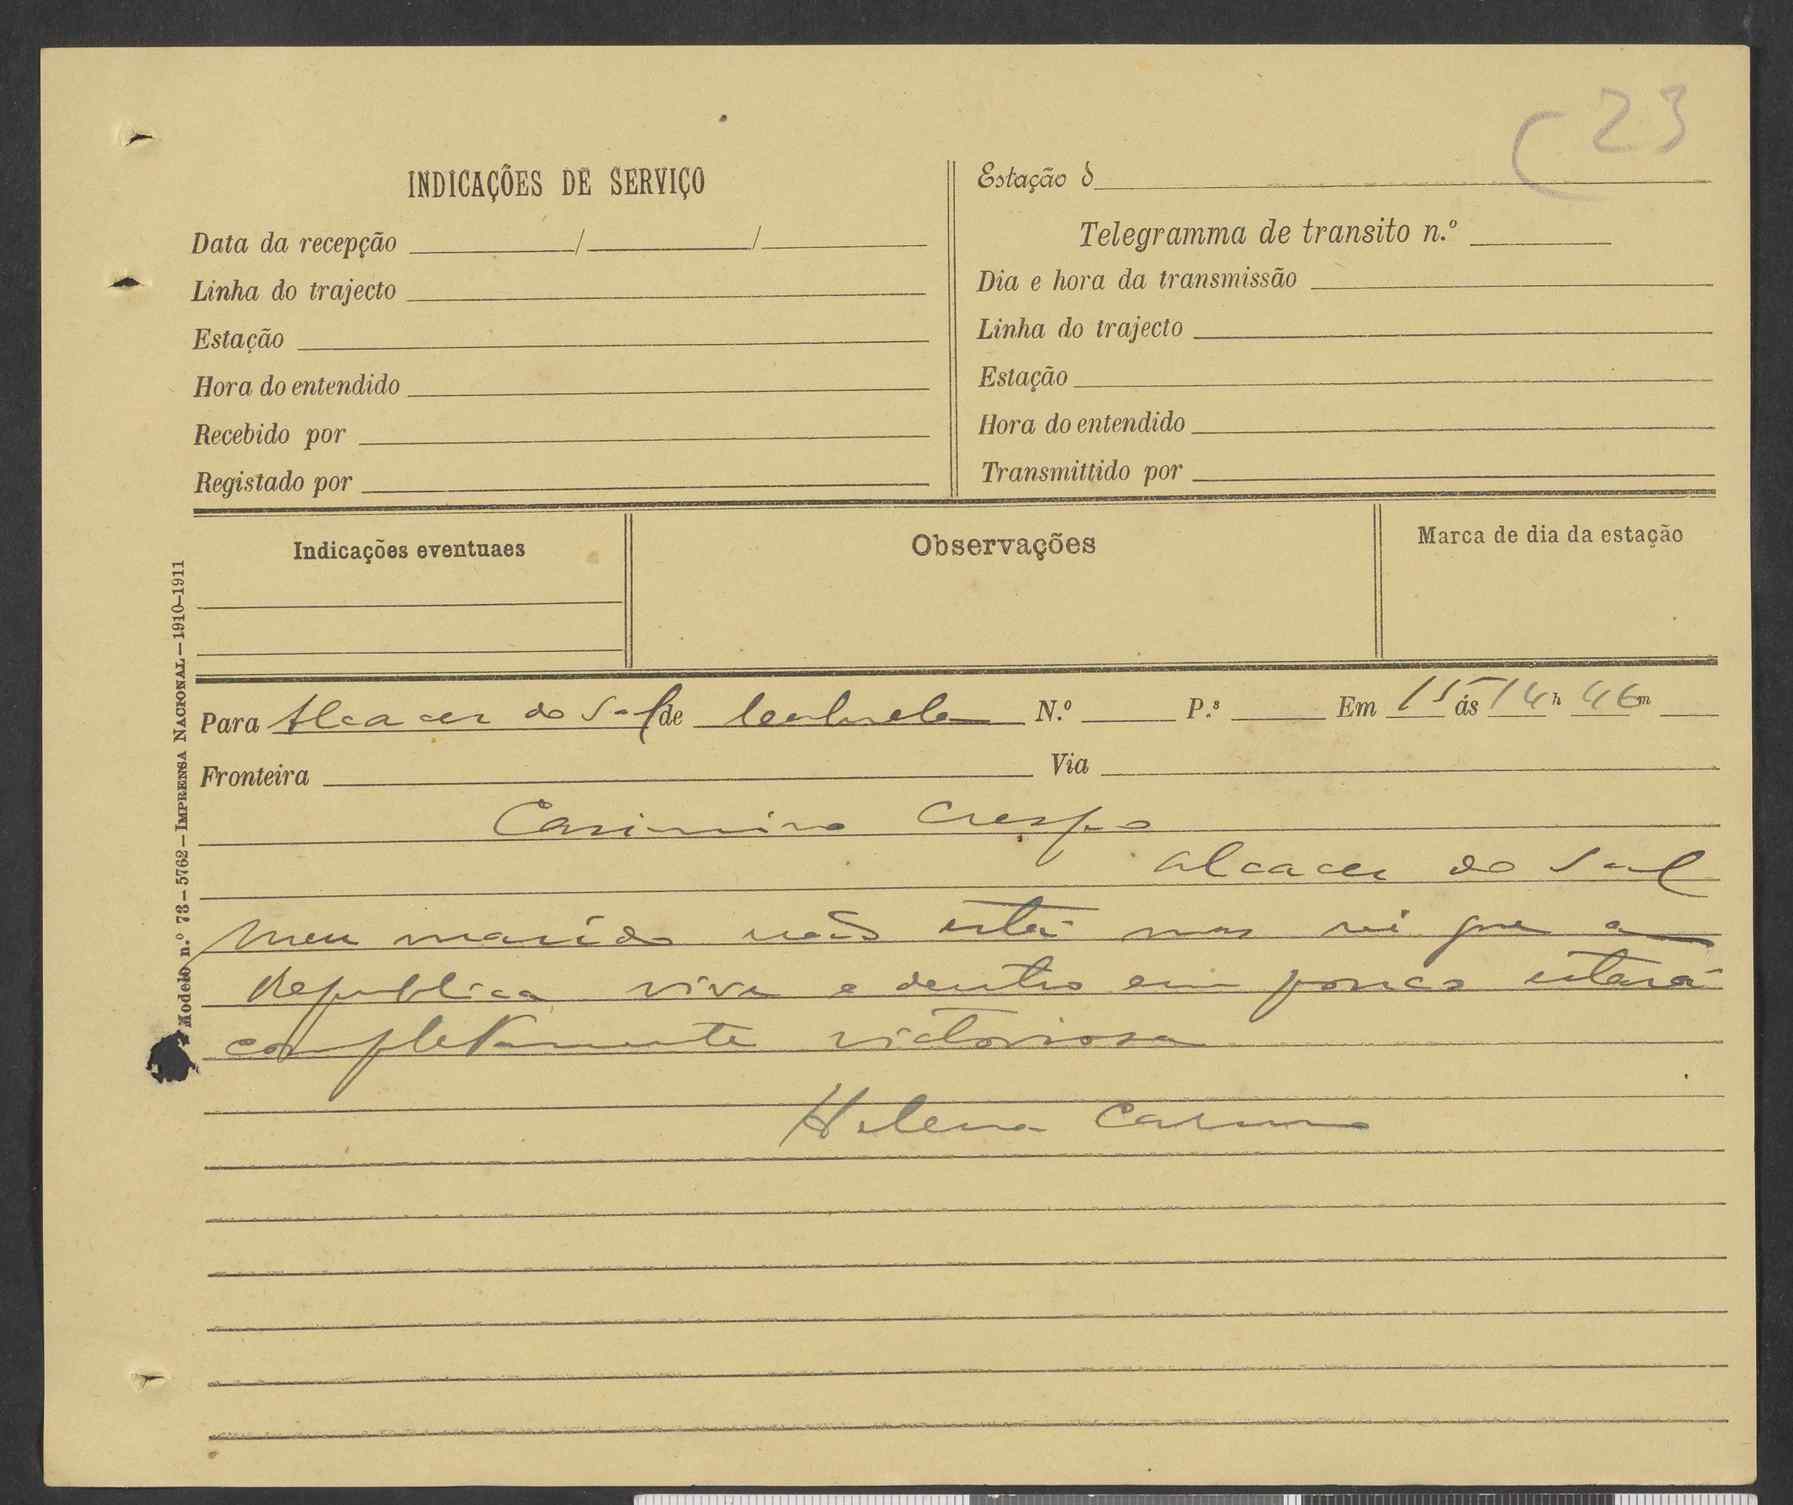 C 23
INDICAÇÕES DE SERVIÇO
Data da recepção / /
Linha do trajecto
Estação
Hora do entendido
Recebido por
Registado por
Estação d
Telegramma de transito n.º
Dia e hora da transmissão
Linha do trajecto
Estação
Hora do entendido
Transmittido por
Indicações eventuaes
Observações
Marca de dia da estação
Modelo n.º 73 — 5762 — IMPRENSA NACIONAL — 1910-1911
Para Alcacer do Sal de N.º P.s Em 15 ás 14 h 46 m
Fronteira Via
Casimiro Crespo
Alcacer do Sal
Meu marido não está mas sei que a
Republica vive e dentro em pouco estará
completamente victoriosa
Helena